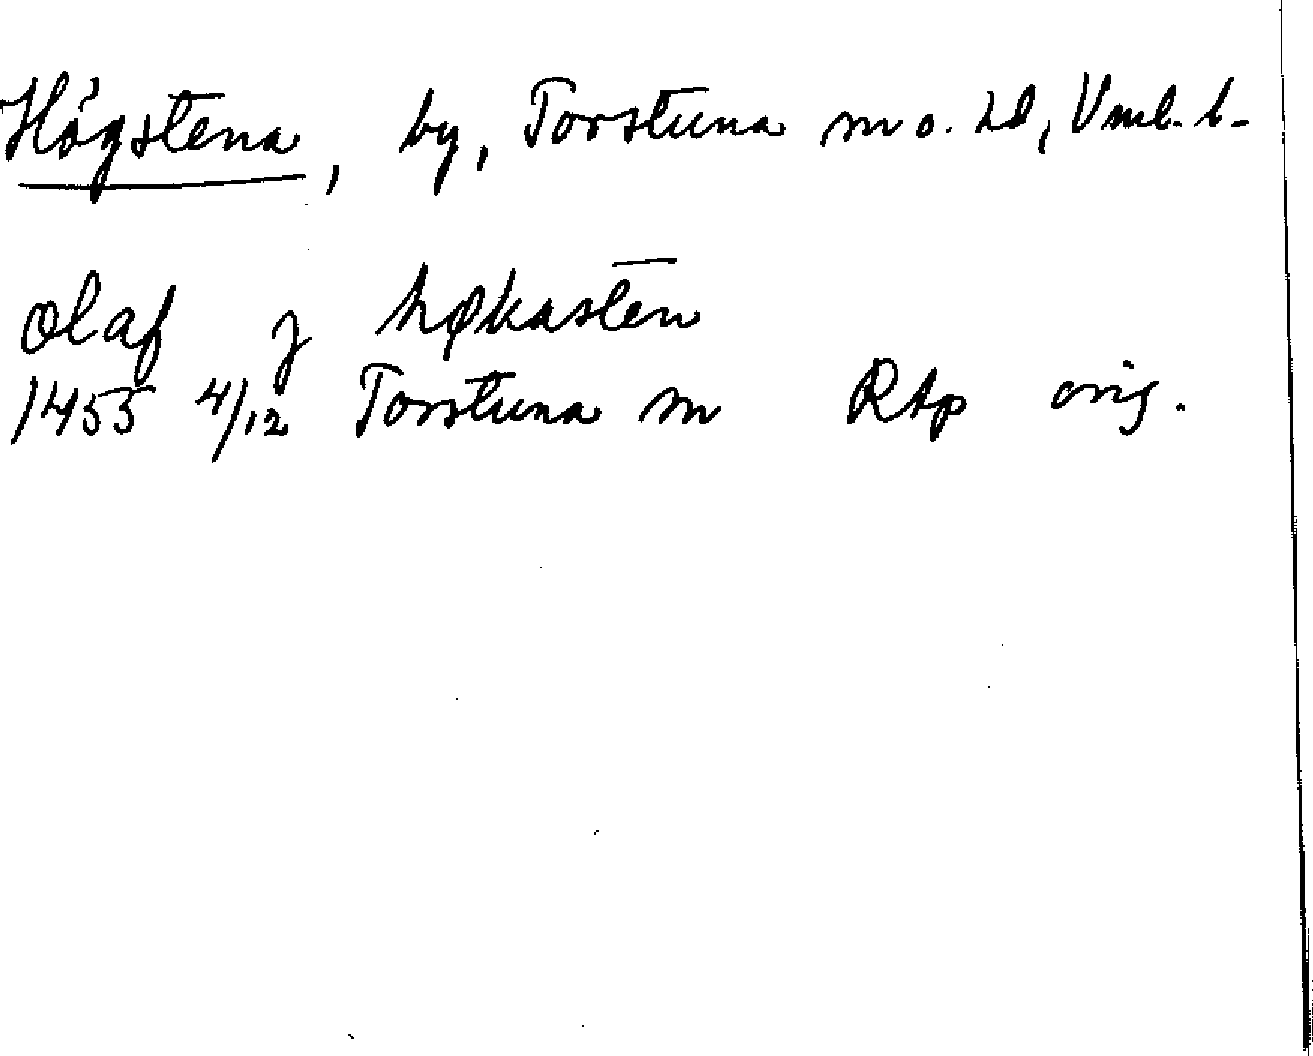 Högstena, by, Torstuna sn o. hd, Vml. l.
Olaf j høkasten
1455 4/12 Torstuna sn RAp orig.